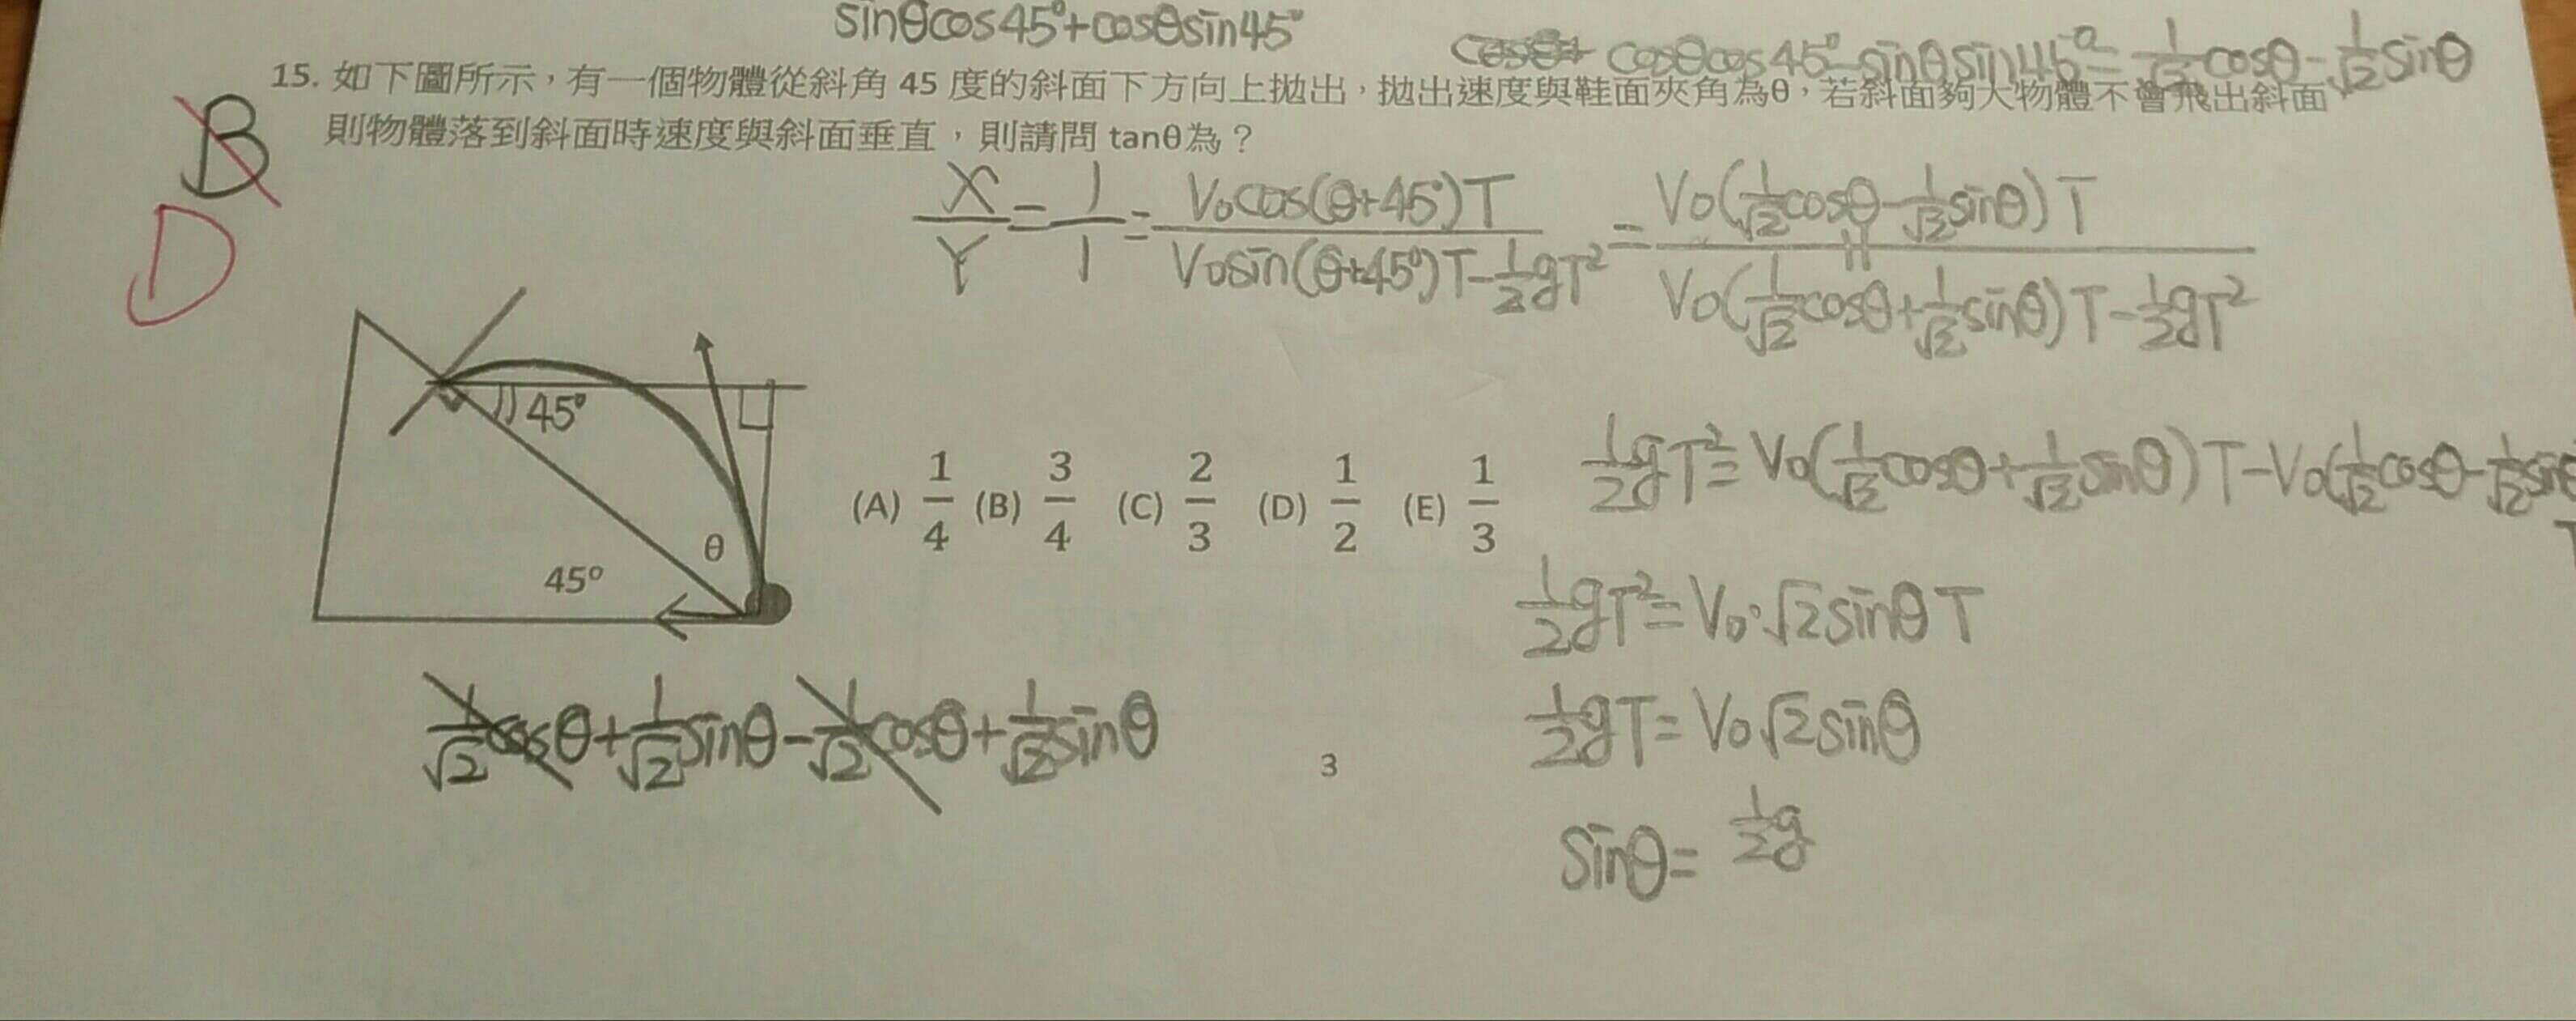 sinθcos45°+cosθsin45°
cosθcos45°-sinθsin45°=1/√2cosθ-1/√2sinθ
15. 如下圖所示，有一個物體從斜角 45 度的斜面下方向上拋出，拋出速度與鞋面夾角為θ，若斜面夠大物體不會飛出斜面
則物體落到斜面時速度與斜面垂直，則請問 tanθ為？
B
D
X/Y=1/1=V₀cos(θ+45°)T/V₀sin(θ+45°)T-1/2gT²=V₀(1/√2cosθ-1/√2sinθ)T/V₀(1/√2cosθ+1/√2sinθ)T-1/2gT²
45°
θ
45°
(A) 1/4 (B) 3/4 (C) 2/3 (D) 1/2 (E) 1/3
1/2gT²=V₀(1/√2cosθ+1/√2sinθ)T-V₀(1/√2cosθ-1/√2sinθ
T
1/2gT²=V₀·√2sinθT
1/2gT=V₀√2sinθ
sinθ=1/2g
1/√2cosθ+1/√2sinθ-1/√2cosθ+1/√2sinθ
3